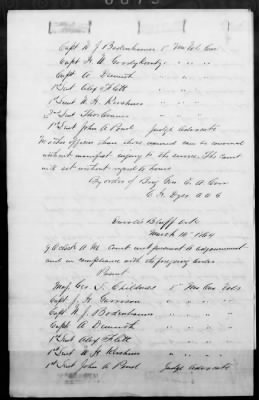 Capt. W. J. Bodenhamer 1" Mo Vol. Cav
Capt. " " " "
Capt. A. Demuth " " " "
1" Lieut Alex Flett " " " "
1" Lieut W. H. Kershner " " " "
2" Lieut " " " "
1" Lieut John A. Poul Judge Advocate
No other officers than those named can be convened
without manifest injury to the service. The court
will sit without regard to hours
By order of Brig Gen E. A. Carr
C. H. Dyer A A G
Devalls Bluff Ark
March 10" 1864
9 Oclock A. M. Court met pursuant to adjournment
and in compliance with the foregoing order
Present
Maj. Geo. S. Childress 1" Mo Cav. Vols
Capt. J. H. Garrison " " " "
Capt. W. J. Bodenhamer " " " "
Capt. A Demuth " " " "
1" Lieut Alex Flett " " " "
1" Lieut W H Kershner " " " "
1st Lieut John A Poul Judge Advocate